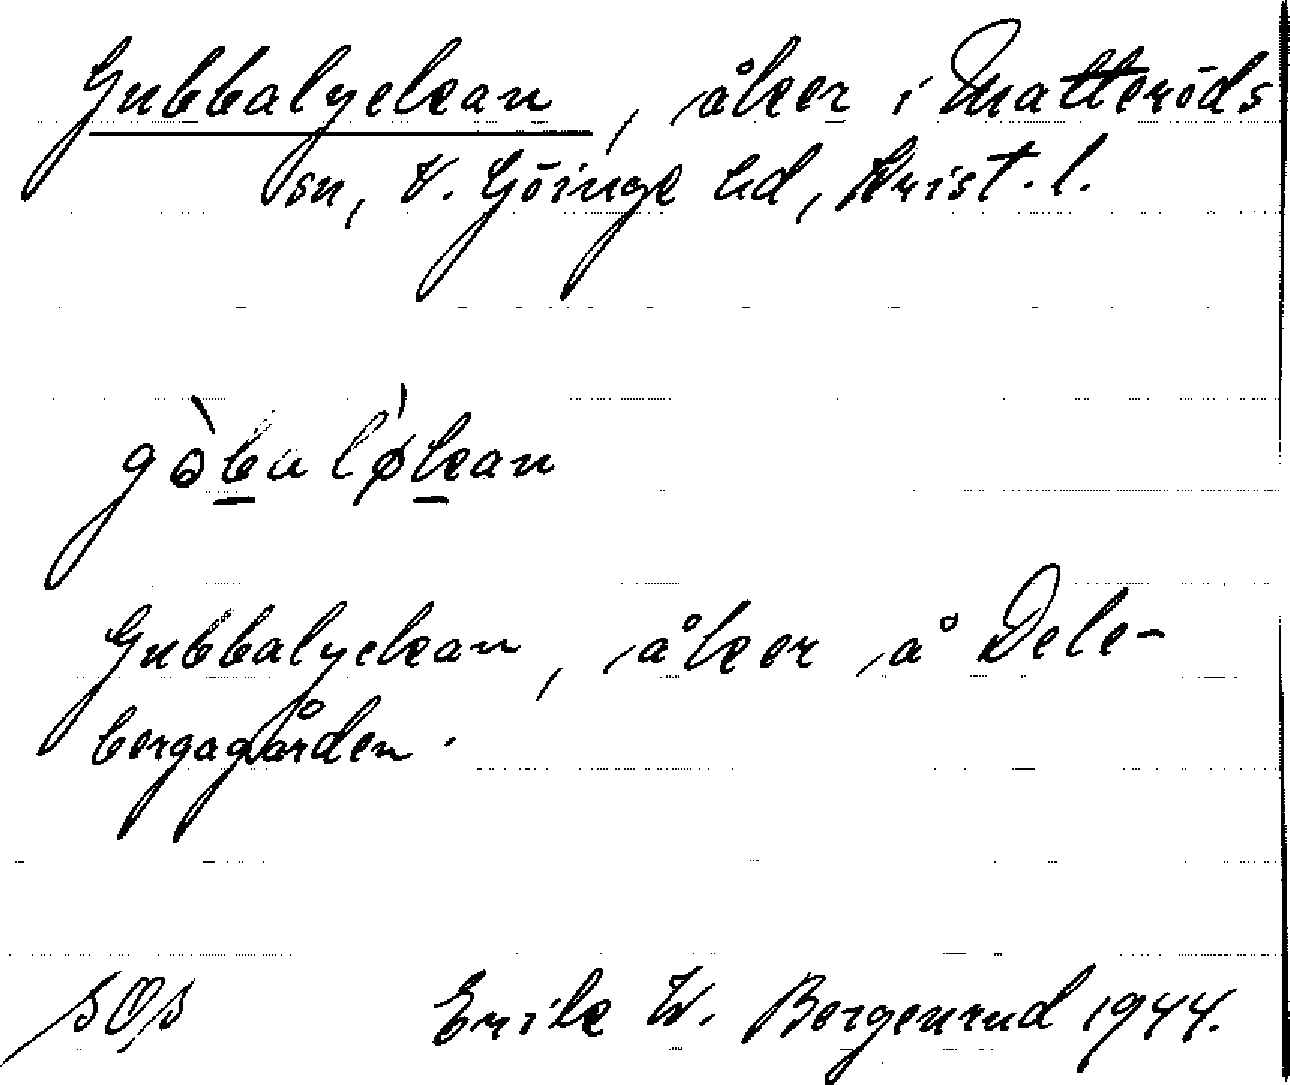 Gubbalyckan, åker i Matteröds
sn, V. Göinge hd, Krist. l.
gò̀b̲a lǿk̲an
Gubbalyckan, åker å Dele-
bergagården.
SOS Erik W. Bergenrud 1944.